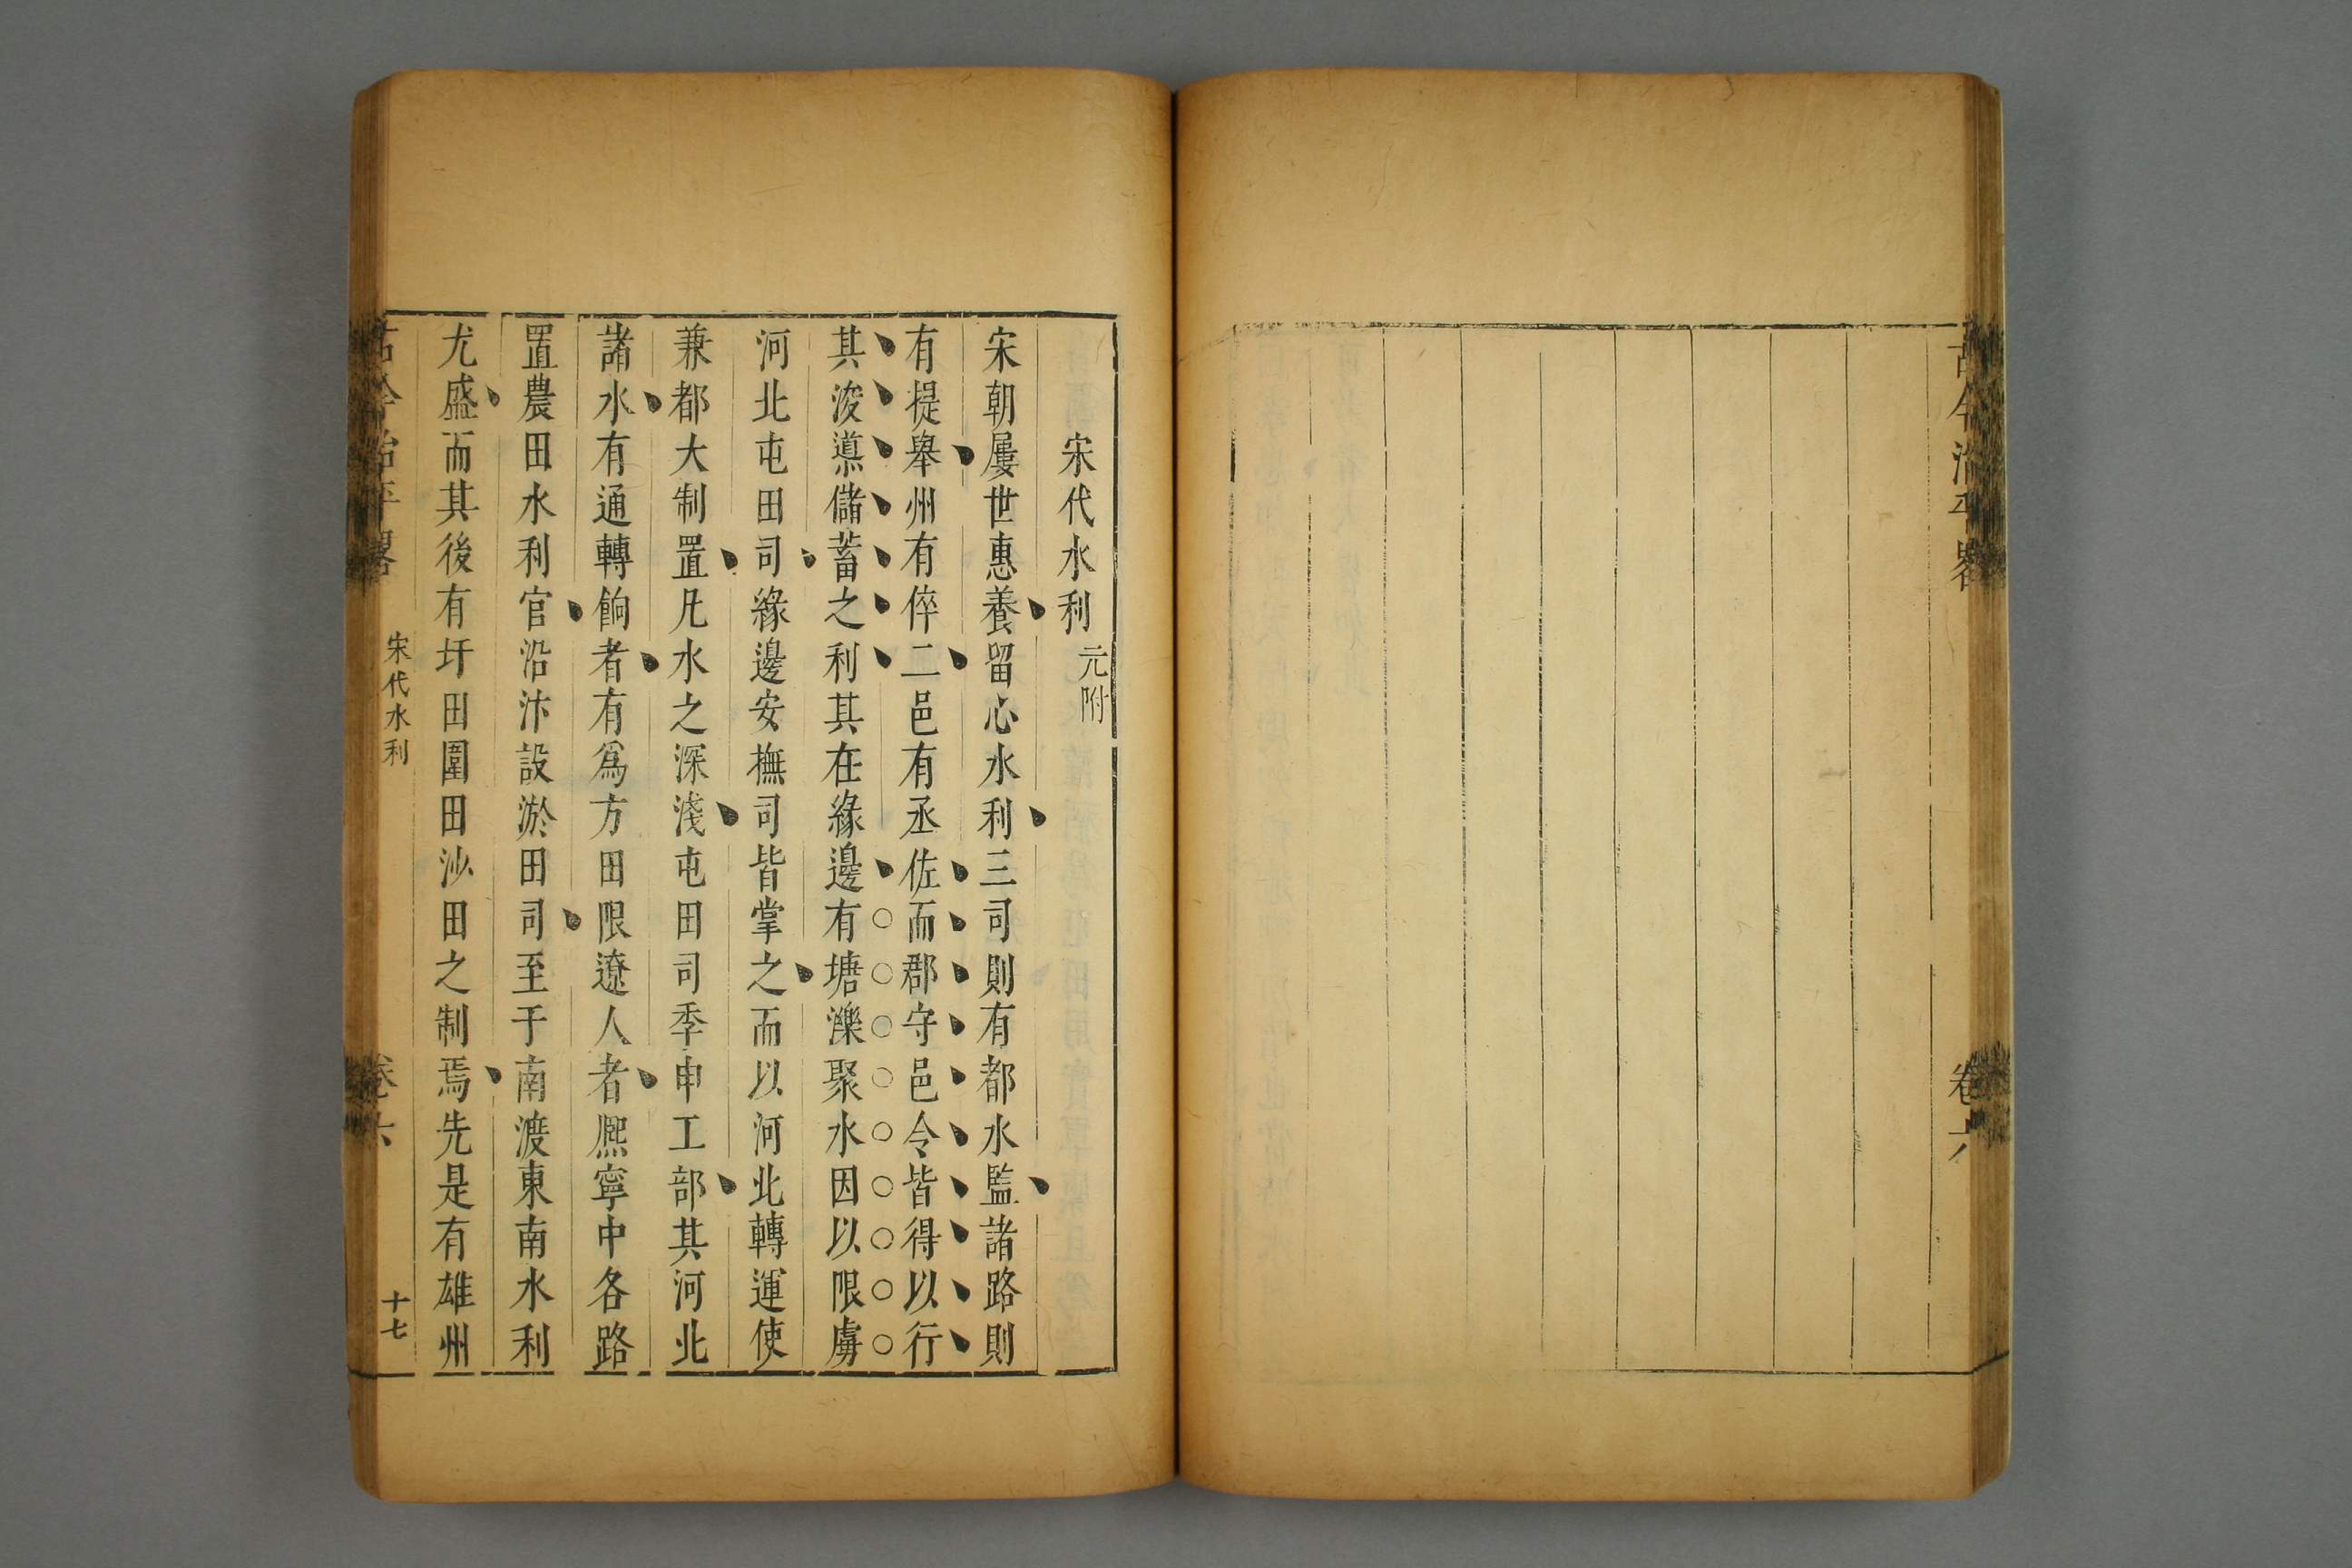 古今治平畧
卷六
宋代水利元附
宋朝屢世惠養留心水利三司則有都水監諸路則
有提舉州有倅二邑有丞佐而郡守邑令皆得以行
其浚導儲蓄之利其在緣邊有塘濼聚水因以限虜
河北屯田司緣邊安撫司皆掌之而以河北轉運使
兼都大制置凡水之深淺屯田司季申工部其河北
諸水有通轉餉者有爲方田限遼人者熈寧中各路
置農田水利官沿汴設淤田司至于南渡東南水利
尤盛而其後有圩田圍田沙田之制焉先是有雄州
古今治平畧
宋代水利
卷六
十七